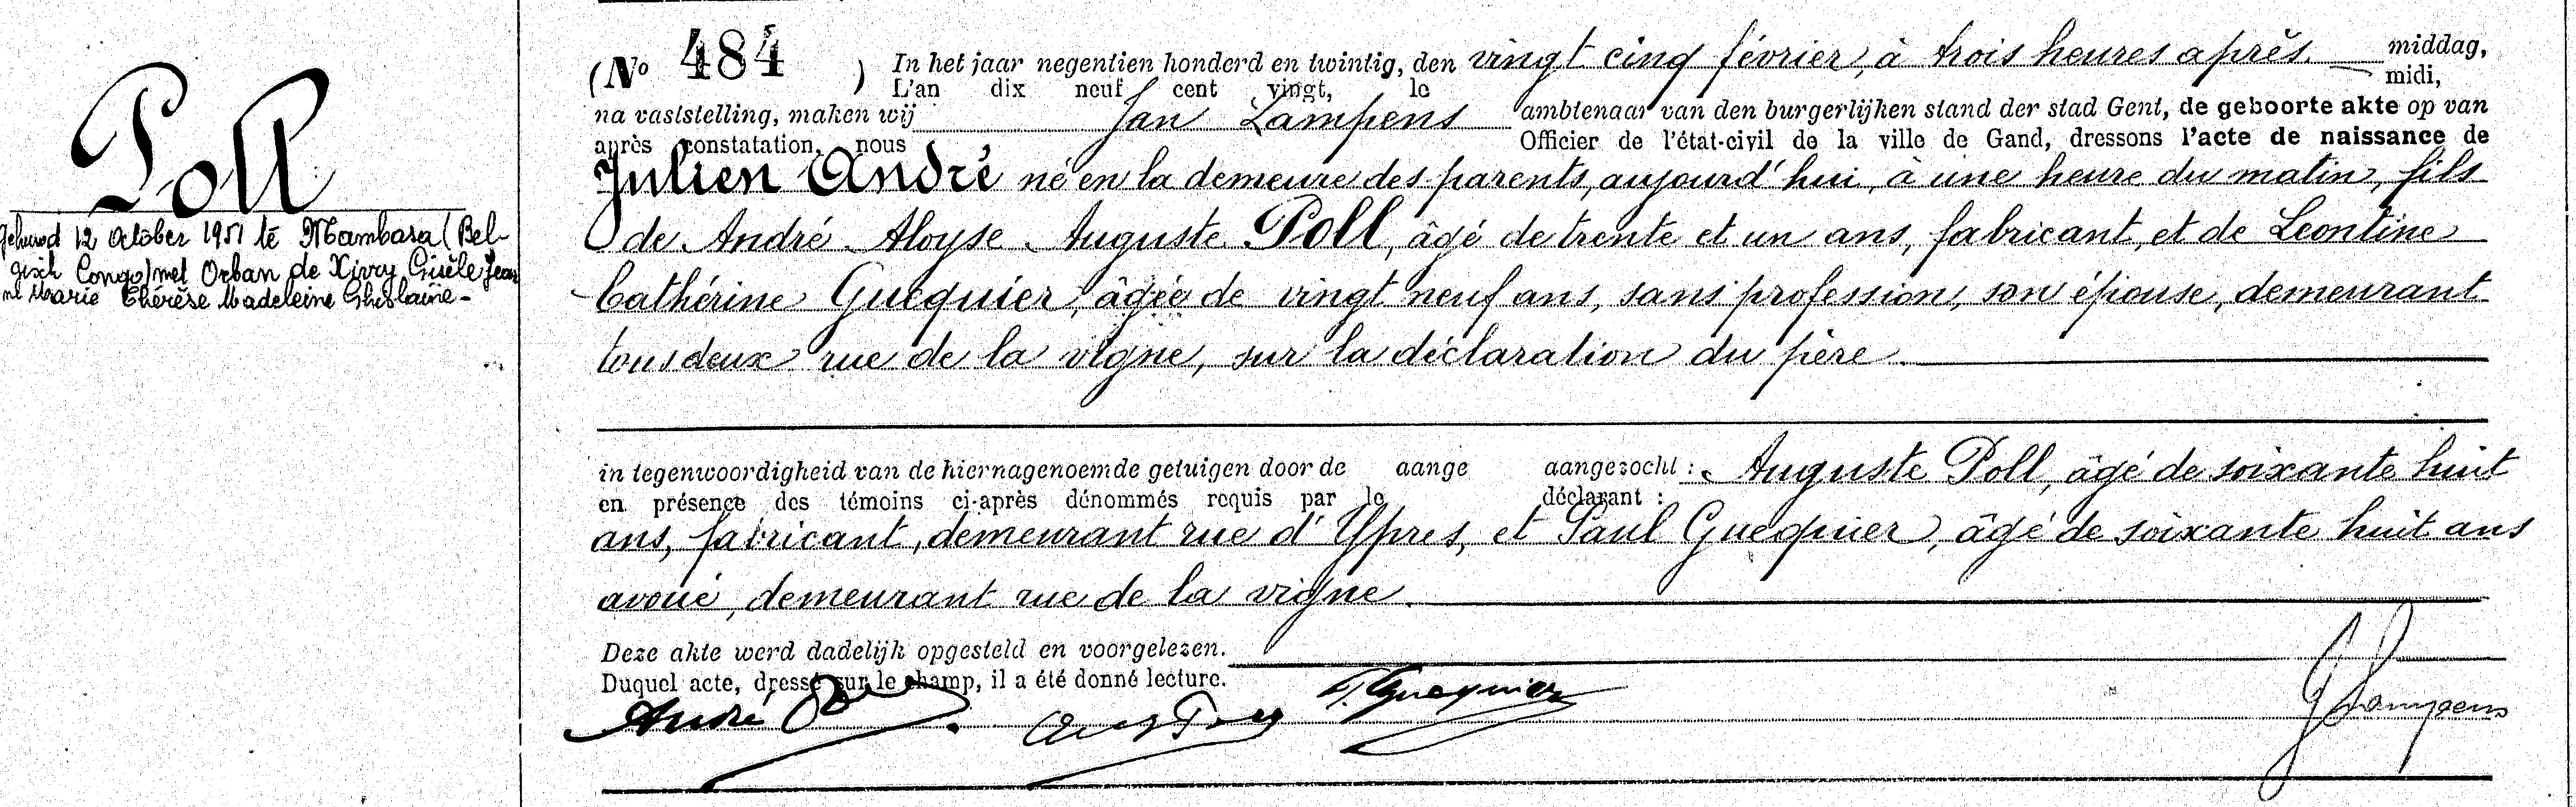 Poll
gehuwd 12 October 1951 te Mambasa (Bel-
gisch Congo) met Orban de Xivry Gisèle Jean
ne Marie Thérèse Madeleine Ghislaine -
(No 484 ) In het jaar negentien honderd en twintig, den vingt cinq février, à trois heures après middag,
L'an dix neuf cent vingt, le midi,
na vaststelling, maken wij Jan Lampens ambtenaar van den burgerlijken stand der stad Gent, de geboorte akte op van
après constatation, nous Officier de l'état-civil de la ville de Gand, dressons l'acte de naissance de
Julien André né en la demeure des parents, aujourd'hui, à une heure du matin, fils
de André Aloyse Auguste Poll, âgé de trente et un ans, fabricant, et de Leontine
Cathérine Guequier, âgée de vingt neuf ans, sans profession, son épouse, demeurant
tous deux rue de la vigne, sur la déclaration du père.
in tegenwoordigheid van de hiernagenoemde getuigen door de aange aangezocht : Auguste Poll, âgé de soixante huit
en présence des témoins ci-après dénommés requis par le déclarant :
ans, fabricant, demeurant rue d'Ypres, et Paul Guequier, âgé de soixante huit ans
avoué, demeurant rue de la vigne.
Deze akte werd dadelijk opgesteld en voorgelezen.
Duquel acte, dressé sur le champ, il a été donné lecture.
André Guequier Lampens